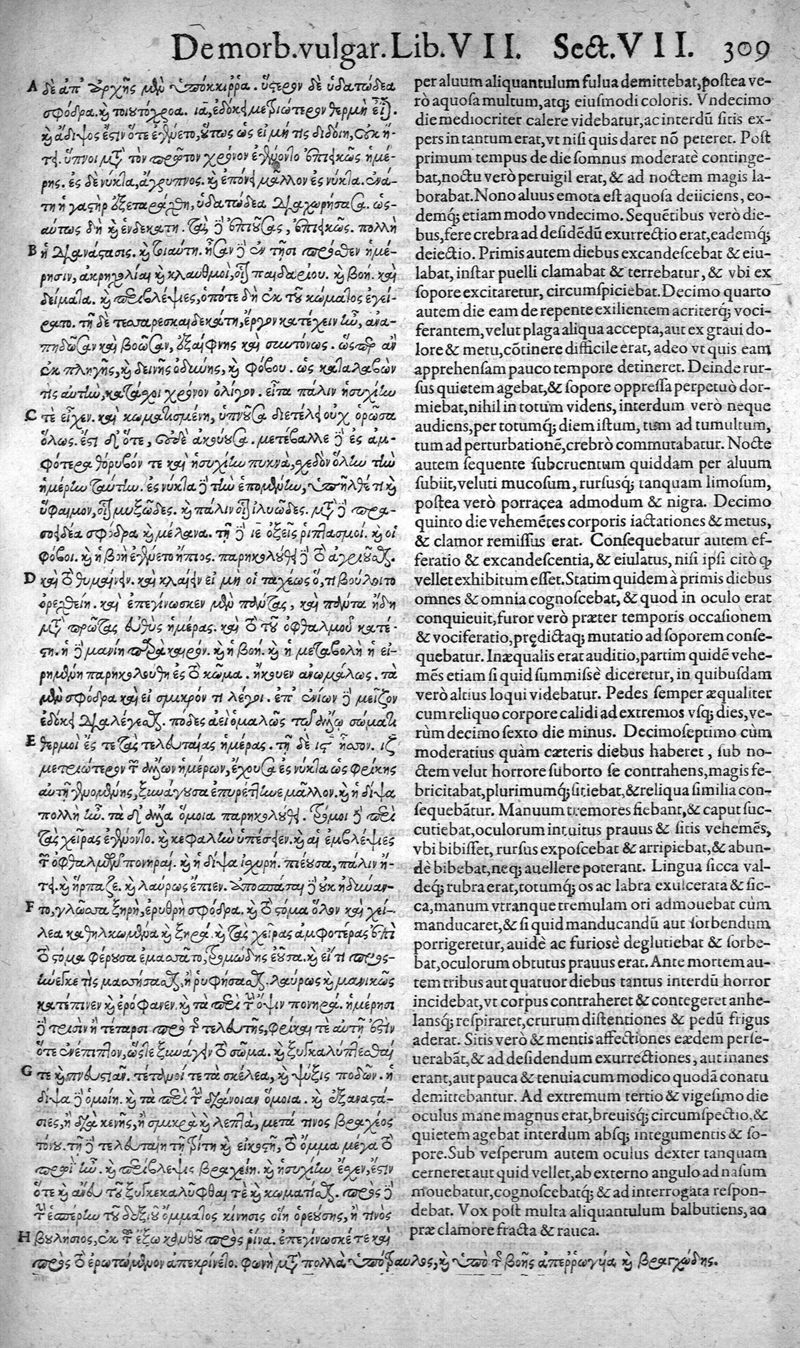 De morb. vulgar. Lib. VII. Sect. VII. 309
A δὲ ἀπ' ἀρχῆς μὲν ὑπόκιρρα. ὕςερον δὲ ὑδατώδεα
σφόδρα. καὶ τοιουτόχροα. ια, ἐδόκει μετριώτερον θερμὴ εἶναι.
καὶ ἄδιψος ἔςιν ὅτε ἐγένετο, οὕτως ὡς εἰ μή τις διδοίη, οὐκ ἤ-
τει. ὕπνοι μετὰ τὸν πρῶτον χρόνον ἐγένοντο ἐπιεικῶς ἡμέ-
ρης. ἐς δὲ νύκτα, ἄγρυπνος. καὶ ἐπόνει μᾶλλον ἐς νύκτα.
τῃ ἡ γαςὴρ ἐξεταράχθη, ὑδατώδεα διαχωρήσασα. ὡς-
αύτως δὴ καὶ ἑνδεκάτῃ. ἐπιεικῶς. πολλὴ
B ἡ διανάςασις. καὶ τοιαύτη. ἦσαν δὲ ἐν τῇσι πρόσθεν ἡμέ-
ρῃσιν, ἀκρηχολίαι καὶ κλαυθμοὶ, οἷον παιδαρίου. καὶ βοὴ. καὶ
δείματα. καὶ περιβλέψιες, ὁπότε δὴ ἐκ τοῦ κώματος ἐγεί-
ροιτο. τῇ δὲ τεσσαρεσκαιδεκάτῃ, ἔργον κατέχειν ἦν, ἀνα-
πηδῶσαν καὶ βοῶσαν, ἐξαίφνης καὶ συντόνως. ὥσπερ ἂν
ἐκ πληγῆς, καὶ δεινῆς ὀδύνης, καὶ φόβου. ὡς καταλαβών
τις αὐτὴν, κατάσχοι χρόνον ὀλίγον. εἶτα πάλιν ἡσυχίην
C τε εἶχεν. καὶ κωματισμένη, ὑπνοῦσα διετέλει οὐχ ὁρῶσα
ὅλως. ἔςι δ' ὅτε, οὐδὲ ἀκούουσα. μετέβαλλε δὲ ἐς ἀμ-
φότερα θόρυβόν τε καὶ ἡσυχίην πυκνὰ, σχεδὸν ὅλην τὴν
ἡμέρην ταύτην. ἐς νύκτα δὲ τὴν ἑπομένην, ὑπῆλθέ τι καὶ
ὕφαιμον, οἷον μυξῶδες. καὶ πάλιν οἷον ἰλυῶδες. μετὰ δὲ πρα-
σοειδέα σφόδρα καὶ μέλανα. τῇ δὲ ιε ὀξεῖς ῥιπτασμοὶ. καὶ οἱ
φόβοι. καὶ ἡ βοὴ ἐγένετο ἤπιος. παρηκολούθει δὲ τὸ ἀγριοῦσθαι.
D καὶ τὸ θυμαίνειν. καὶ κλαίειν εἰ μή οἱ ταχέως ὅ, τι βούλοιτο
ὀρεχθείη. καὶ ἐπεγίνωσκεν μὲν πάντας, καὶ πάντα ἤδη
μετὰ πρώτας εὐθὺς ἡμέρας. καὶ τὸ τοῦ ὀφθαλμοῦ κατέ-
ςη. ἡ μανίη παρὰ καιρὸν. καὶ ἡ βοὴ. καὶ ἡ μεταβολὴ ἡ εἰ-
ρημένη παρηκολούθει ἐς τὸ κῶμα. ἤκουεν ἀνωμάλως. τὰ
μὲν σφόδρα καὶ εἰ σμικρόν τι λέγοι. ἐπ' ἐνίων δὲ μεῖζον
ἐδόκει διαλέγεσθαι. πόδες ἀεὶ ὁμαλῶς τῷ ἄλλῳ σώματι
E θερμοὶ ἐς τελευταίας ἡμέρας. τῇ δὲ ις ἧσσον. ιζ
μετριώτερον τῶν ἄλλων ἡμερῶν, ἔχουσα ἐς νύκτα ὡς φρίκης
αὐτῇ γενομένης, ξυνάγουσα ἐπυρέτηνε μᾶλλον. καὶ ἡ δίψα
πολλὴ ἦν. τὰ δ' ἄλλα ὅμοια παρηκολούθει. τρόμοι δὲ περὶ
τὰς χεῖρας ἐγένοντο. καὶ κεφαλὴν ὑπέσειεν. καὶ αἱ ἐμβλέψιες
τῶν ὀφθαλμῶν πονηραὶ. καὶ ἡ δίψα ἰσχυρὴ. πιέουσα, πάλιν ᾔ-
τει. καὶ ἥρπαζε. καὶ λαύρως ἔπιεν. ἀποσπάσαι δὲ οὐκ ἠδύναν-
F το, γλῶσσα ξηρὴ, ἐρυθρὴ σφόδρα. καὶ τὸ ςόμα ὅλον καὶ χεί-
λεα καθηλκωμένα καὶ ξηρά. καὶ τὰς χεῖρας ἀμφοτέρας ἐπὶ
τὸ ςόμα φέρουσα ἐμασᾶτο, τρομώδης ἐοῦσα. καὶ εἴ τι προς-
ενέγκε τις μασήσασθαι, ἢ ῥυφήσασθαι. λαύρως καὶ μανικῶς
κατέπινεν καὶ ἐρόφανεν. καὶ τὰ περὶ τὴν ὄψιν πονηρά. ἡμέρῃσι
δὲ τρισὶν ἢ τέταρσι πρὸ τῆς τελευτῆς, φρίκαι τε αὐτῇ ἐςὶν
ὅτε ἐνέπιπτον, ὥςε ξυνάγειν τὸ σῶμα. καὶ ξυγκαλύπτεσθαί
G τε καὶ πνευςιᾶν. τέτανοί τε τὰ σκέλεα, καὶ ψύξις ποδῶν. ἡ
δίψα δὲ ὁμοίη. καὶ τὰ περὶ τὴν διάνοιαν ὅμοια. καὶ ἐξαναςά-
σιες, ἢ διακενῆς, ἢ σμικρὰ καὶ λεπτὰ, μετά τινος βραχέος
τόνου. τῇ δὲ τελευταίῃ τῇ τρίτῃ καὶ εἰκοςῇ, τὸ ὄμμα μέγα τὸ
πρωὶ ἦν. καὶ περίβλεψις βραχείη. καὶ ἡσυχίην ἔσχεν, ἔςιν
ὅτε καὶ ἄνευ τοῦ ξυγκεκαλύφθαι τε καὶ κωματίσθαι. πρὸς δὲ
τὴν ἑσπέρην τοῦ δεξιοῦ ὄμματος κίνησις οἵη ὁρεούσης, ἤ τινος
H βουλήσιος, ἐκ τοῦ ἔξω κανθοῦ πρὸς ῥίνα. ἐπεγίνωσκέ τε καὶ
per aluum aliquantulum fulua demittebat, postea ve-
rò aquosa multum, atq; eiusmodi coloris. Vndecimo
die mediocriter calere videbatur, ac interdũ sitis ex-
pers in tantum erat, vt nisi quis daret nõ peteret. Post
primum tempus de die somnus moderatè continge-
bat, noctu verò peruigil erat, & ad noctem magis la-
borabat. Nono aluus emota est aquosa deiiciens, eo-
demq; etiam modo vndecimo. Sequẽtibus verò die-
bus, fere crebra ad desidẽdũ exurrectio erat, eademq;
deiectio. Primis autem diebus excandescebat & eiu-
labat, instar puelli clamabat & terrebatur, & vbi ex
sopore excitaretur, circumspiciebat. Decimo quarto
autem die eam de repente exilientem acriterq; voci-
ferantem, velut plaga aliqua accepta, aut ex graui do-
lore & metu, cõtinere difficile erat, adeo vt quis eam
apprehensam pauco tempore detineret. Deinde rur-
sus quietem agebat, & sopore oppressa perpetuò dor-
miebat, nihil in totum videns, interdum verò neque
audiens, per totumq; diem istum, tum ad tumultum,
tum ad perturbationẽ, crebrò commutabatur. Nocte
autem sequente subcruentum quiddam per aluum
subiit, veluti mucosum, rursusq; tanquam limosum,
postea verò porracea admodum & nigra. Decimo
quinto die vehemẽtes corporis iactationes & metus,
& clamor remissus erat. Consequebatur autem ef-
feratio & excandescentia, & eiulatus, nisi ipsi citò q
vellet exhibitum esset. Statim quidem à primis diebus
omnes & omnia cognoscebat, & quod in oculo erat
conquieuit, furor verò præter temporis occasionem
& vociferatio, prędictaq; mutatio ad soporem conse-
quebatur. Inæqualis erat auditio, partim quidẽ vehe-
mẽs etiam si quid summissè diceretur, in quibusdam
verò altius loqui videbatur. Pedes semper æqualiter
cum reliquo corpore calidi ad extremos vsq; dies, ve-
rùm decimo sexto die minus. Decimoseptimo cùm
moderatius quàm cæteris diebus haberet, sub no-
ctem velut horrore suborto se contrahens, magis fe-
bricitabat, plurimumq; sitiebat, & reliqua similia con-
sequebãtur. Manuum tremores fiebant, & caput suc-
cutiebat, oculorum intuitus prauus & sitis vehemẽs,
vbi bibisset, rursus exposcebat & arripiebat, & abun-
dè bibebat, neq; auellere poterant. Lingua sicca val-
deq; rubra erat, totumq; os ac labra exulcerata & sic-
ca, manum vtranque tremulam ori admouebat cùm
manducaret, & si quid manducandũ aut sorbendum
porrigeretur, auidè ac furiosè deglutiebat & sorbe-
bat, oculorum obtutus prauus erat. Ante mortem au-
tem tribus aut quatuor diebus tantus interdũ horror
incidebat, vt corpus contraheret & contegeret anhe-
lansq; respiraret, crurum distentiones & pedũ frigus
aderat. Sitis verò & mentis affectiones eædem perse-
uerabãt, & ad desidendum exurrectiones, aut inanes
erant, aut pauca & tenuia cum modico quodã conatu
demittebantur. Ad extremum tertio & vigesimo die
oculus mane magnus erat, breuisq; circumspectio, &
quietem agebat interdum absq; integumentis & so-
pore. Sub vesperum autem oculus dexter tanquam
cerneret aut quid vellet, ab externo angulo ad nasum
mouebatur, cognoscebatq; & ad interrogata respon-
debat. Vox post multa aliquantulum balbutiens, ac
præ clamore fracta & rauca.
πρὸς τὸ ἐρωτώμενον ἀπεκρίνετο. φωνὴ μετὰ πολλὰ ὑπότραυλος, καὶ ὑπὸ τῆς βοῆς ἀπερρωγυῖα καὶ βραγχώδης.